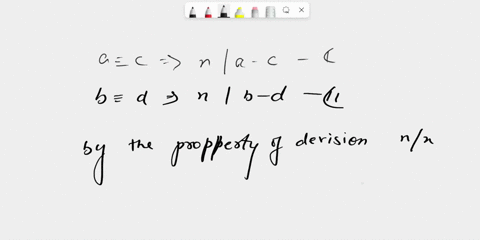 a ≡ c => n | a - c - (
b ≡ d => n | b - d - (ii
by the propperty of derision n/n